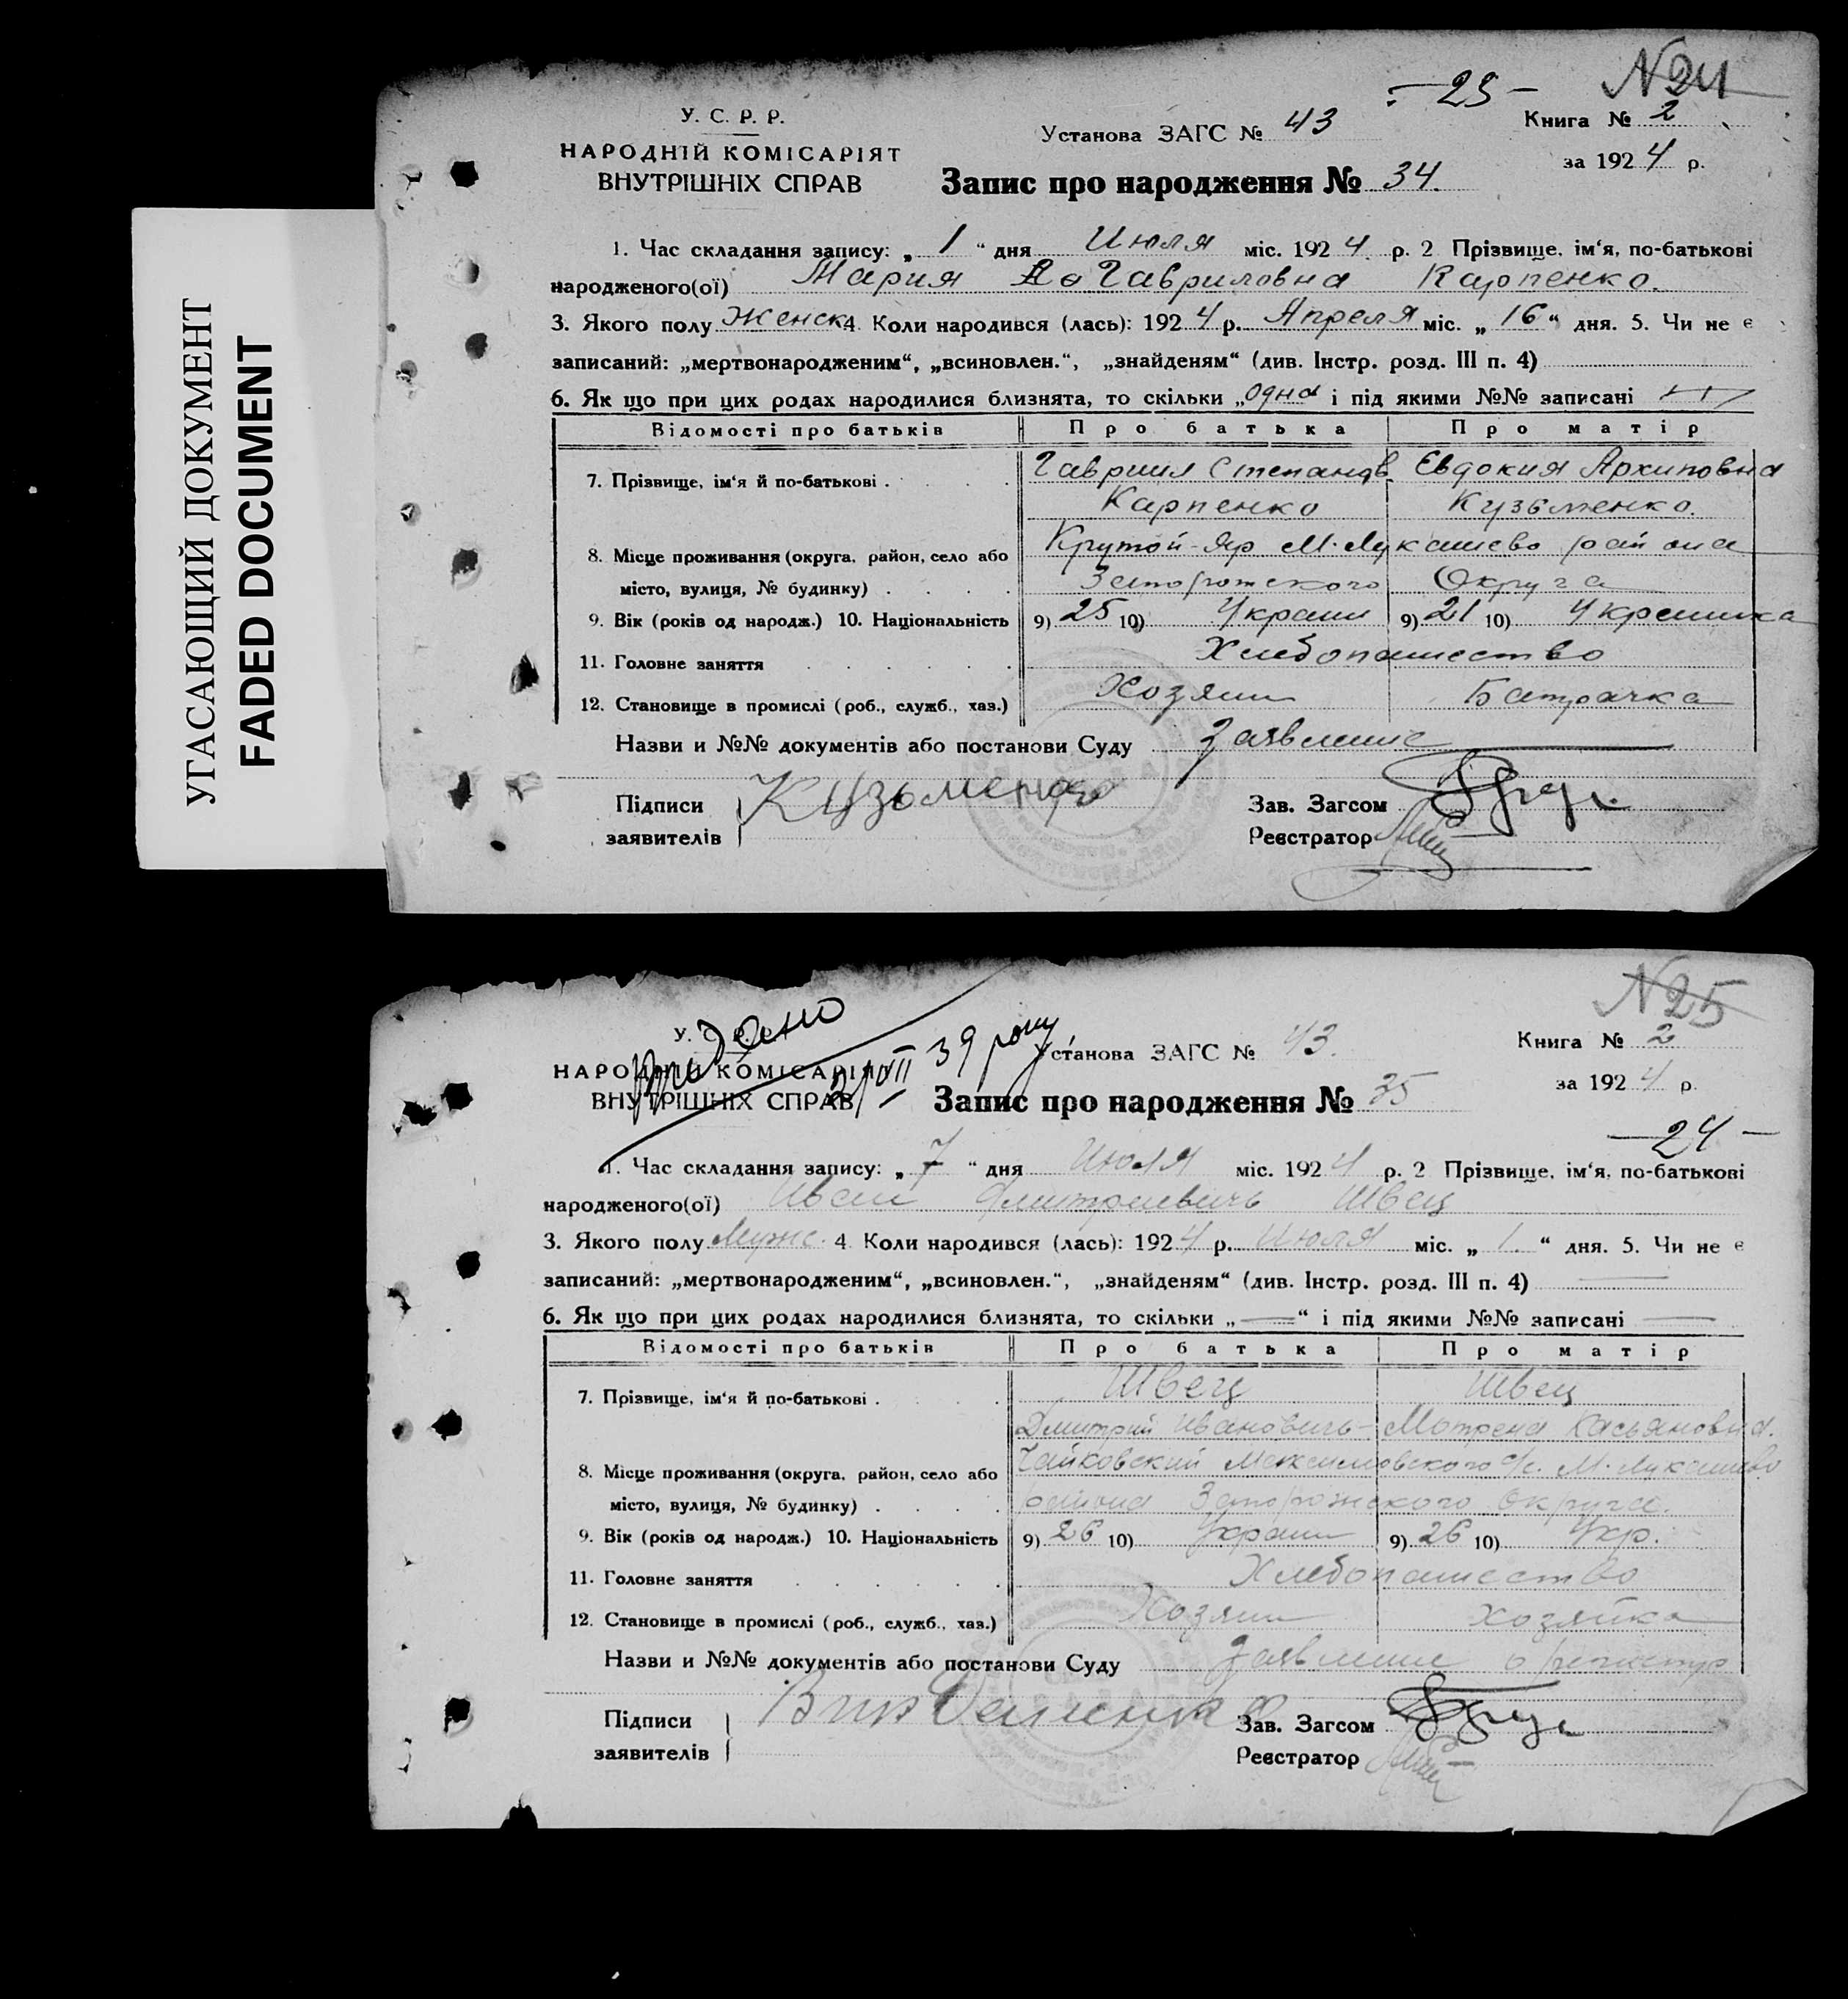 УГАСАЮЩИЙ ДОКУМЕНТ
FADED DOCUMENT
- 23 - N24
У. С. Р. Р.
НАРОДНІЙ КОМІСАРІЯТ
ВНУТРІШНІХ СПРАВ
Установа ЗАГС № 43
Книга № 2
за 1924 р.
Запис про народження № 34.
1. Час складання запису: „ 1 “ дня Июля міс. 1924 р. 2 Прізвище, ім‘я, по-батькові
народженого(ої) Мария Гавриловна Карпенко.
3. Якого полу Женск 4 Коли народився (лась): 1924 р. Апреля міс. „ 16 “ дня. 5. Чи не є
записаний: „мертвонародженим“, „всиновлен.“, „знайденям“ (див. Інстр. розд. III п. 4)
6. Як що при цих родах народилися близнята, то скільки „одна і під якими №№ записані
Відомості про батьків Про батька Про матір
7. Прізвище, ім‘я й по-батькові . Гавриил Степанов Евдокия Архиповна
Карпенко Кузьменко.
8. Місце проживання (округа, район, село або Крутой-Яр М.-Лукашево района
місто, вулиця, № будинку) Запорожского Округа
9. Вік (років од народж.) 10. Національність 9) 25 10) Украин 9) 21 10) Украинка
11. Головне заняття Хлебопашество
12. Становище в промислі (роб., служб., хаз.) Хозяин Батрачка
Назви и №№ документів або постанови Суду Заявление
Підписи Кузьменко Зав. Загсом
заявителів Реєстратор
N25
Придано
У. С. Р. Р.
НАРОДНІЙ КОМІСАРІЯТ
ВНУТРІШНІХ СПРАВ
VII 39 року
Установа ЗАГС № 43.
Книга № 2
за 1924 р.
Запис про народження № 35
- 24 -
1. Час складання запису: „ 7 “ дня Июля міс. 1924 р. 2 Прізвище, ім‘я, по-батькові
народженого(ої) Иван Дмитриевичь Швец
3. Якого полу Мужс. 4 Коли народився (лась): 1924 р. Июля міс. „ 1. “ дня. 5. Чи не є
записаний: „мертвонародженим“, „всиновлен.“, „знайденям“ (див. Інстр. розд. III п. 4)
6. Як що при цих родах народилися близнята, то скільки „ — “ і під якими №№ записані —
Відомості про батьків Про батька Про матір
7. Прізвище, ім‘я й по-батькові . Швец Швец
Дмитрий Ивановичь- Мотрена Касьяновна.
8. Місце проживання (округа, район, село або Чайковский Максимовского с/с. М.-Лукашево
місто, вулиця, № будинку) района Запорожского Округа.
9. Вік (років од народж.) 10. Національність 9) 26 10) Украин 9) 26 10) Укр.
11. Головне заняття Хлебопашество
12. Становище в промислі (роб., служб., хаз.) Хозяин Хозяйка
Назви и №№ документів або постанови Суду Заявление о регистр
Підписи Зав. Загсом
заявителів Реєстратор